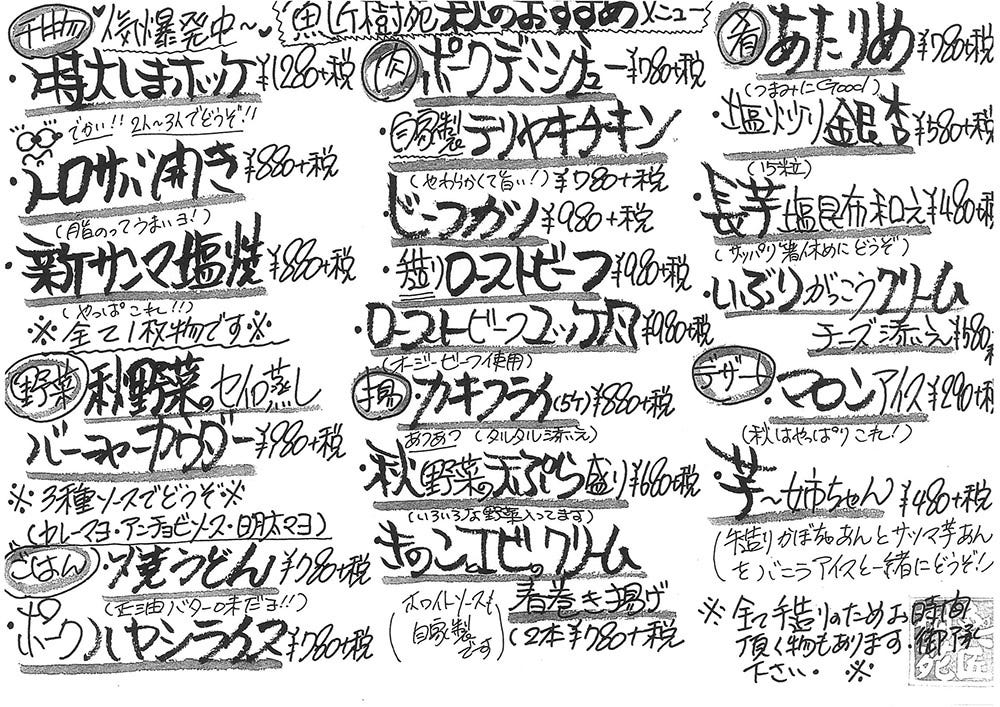 魚匠樹苑 秋のおすすめメニュー
干物 人気爆発中〜♥
・特大しまホッケ ¥1280+税
(でかい!!2人〜3人でどうぞ!!)
・トロサバ開き ¥880+税
(脂のってうまいヨ!)
・新サンマ塩焼 ¥880+税
(やっぱこれ!!)
※全て1枚物です※
野菜 秋野菜のセイロ蒸し
バーニャカウダー ¥980+税
※3種ソースでどうぞ※
(カレーマヨ・アンチョビソース・明太マヨ)
ごはん・焼うどん ¥780+税
(正油バター味だよ!!)
・ポークハヤシライス ¥780+税
肉・ポークデミシチュー ¥780+税
・自家製テリヤキチキン
(やわらかくて旨い!) ¥780+税
・ビーフカツ ¥980+税
・手造りローストビーフ ¥980+税
・ローストビーフユッケ風 ¥980+税
(オージービーフ使用)
揚・カキフライ(5ケ) ¥880+税
あつあつ(タルタル添え)
・秋野菜の天ぷら盛り ¥680+税
(いろいろな野菜入ってます)
・きのことエビのクリーム
春巻き揚げ
(ホワイトソースも
自家製です)
(2本 ¥780+税
肴・あたりめ ¥780+税
(つまみにGood!)
・塩炒り銀杏 ¥580+税
(15粒)
・長芋塩昆布和え ¥480+税
(サッパリ箸休めにどうぞ)
・いぶりがっこクリーム
チーズ添え ¥580+
デザート・マロンアイス ¥290+税
(秋はやっぱりこれ!)
・芋〜姉ちゃん ¥480+税
(手造りかぼちゃあんとサツマ芋あん
をバニラアイスと一緒にどうぞ!)
※全て手造りのためお時間
頂く物もあります。御了承
下さい。※